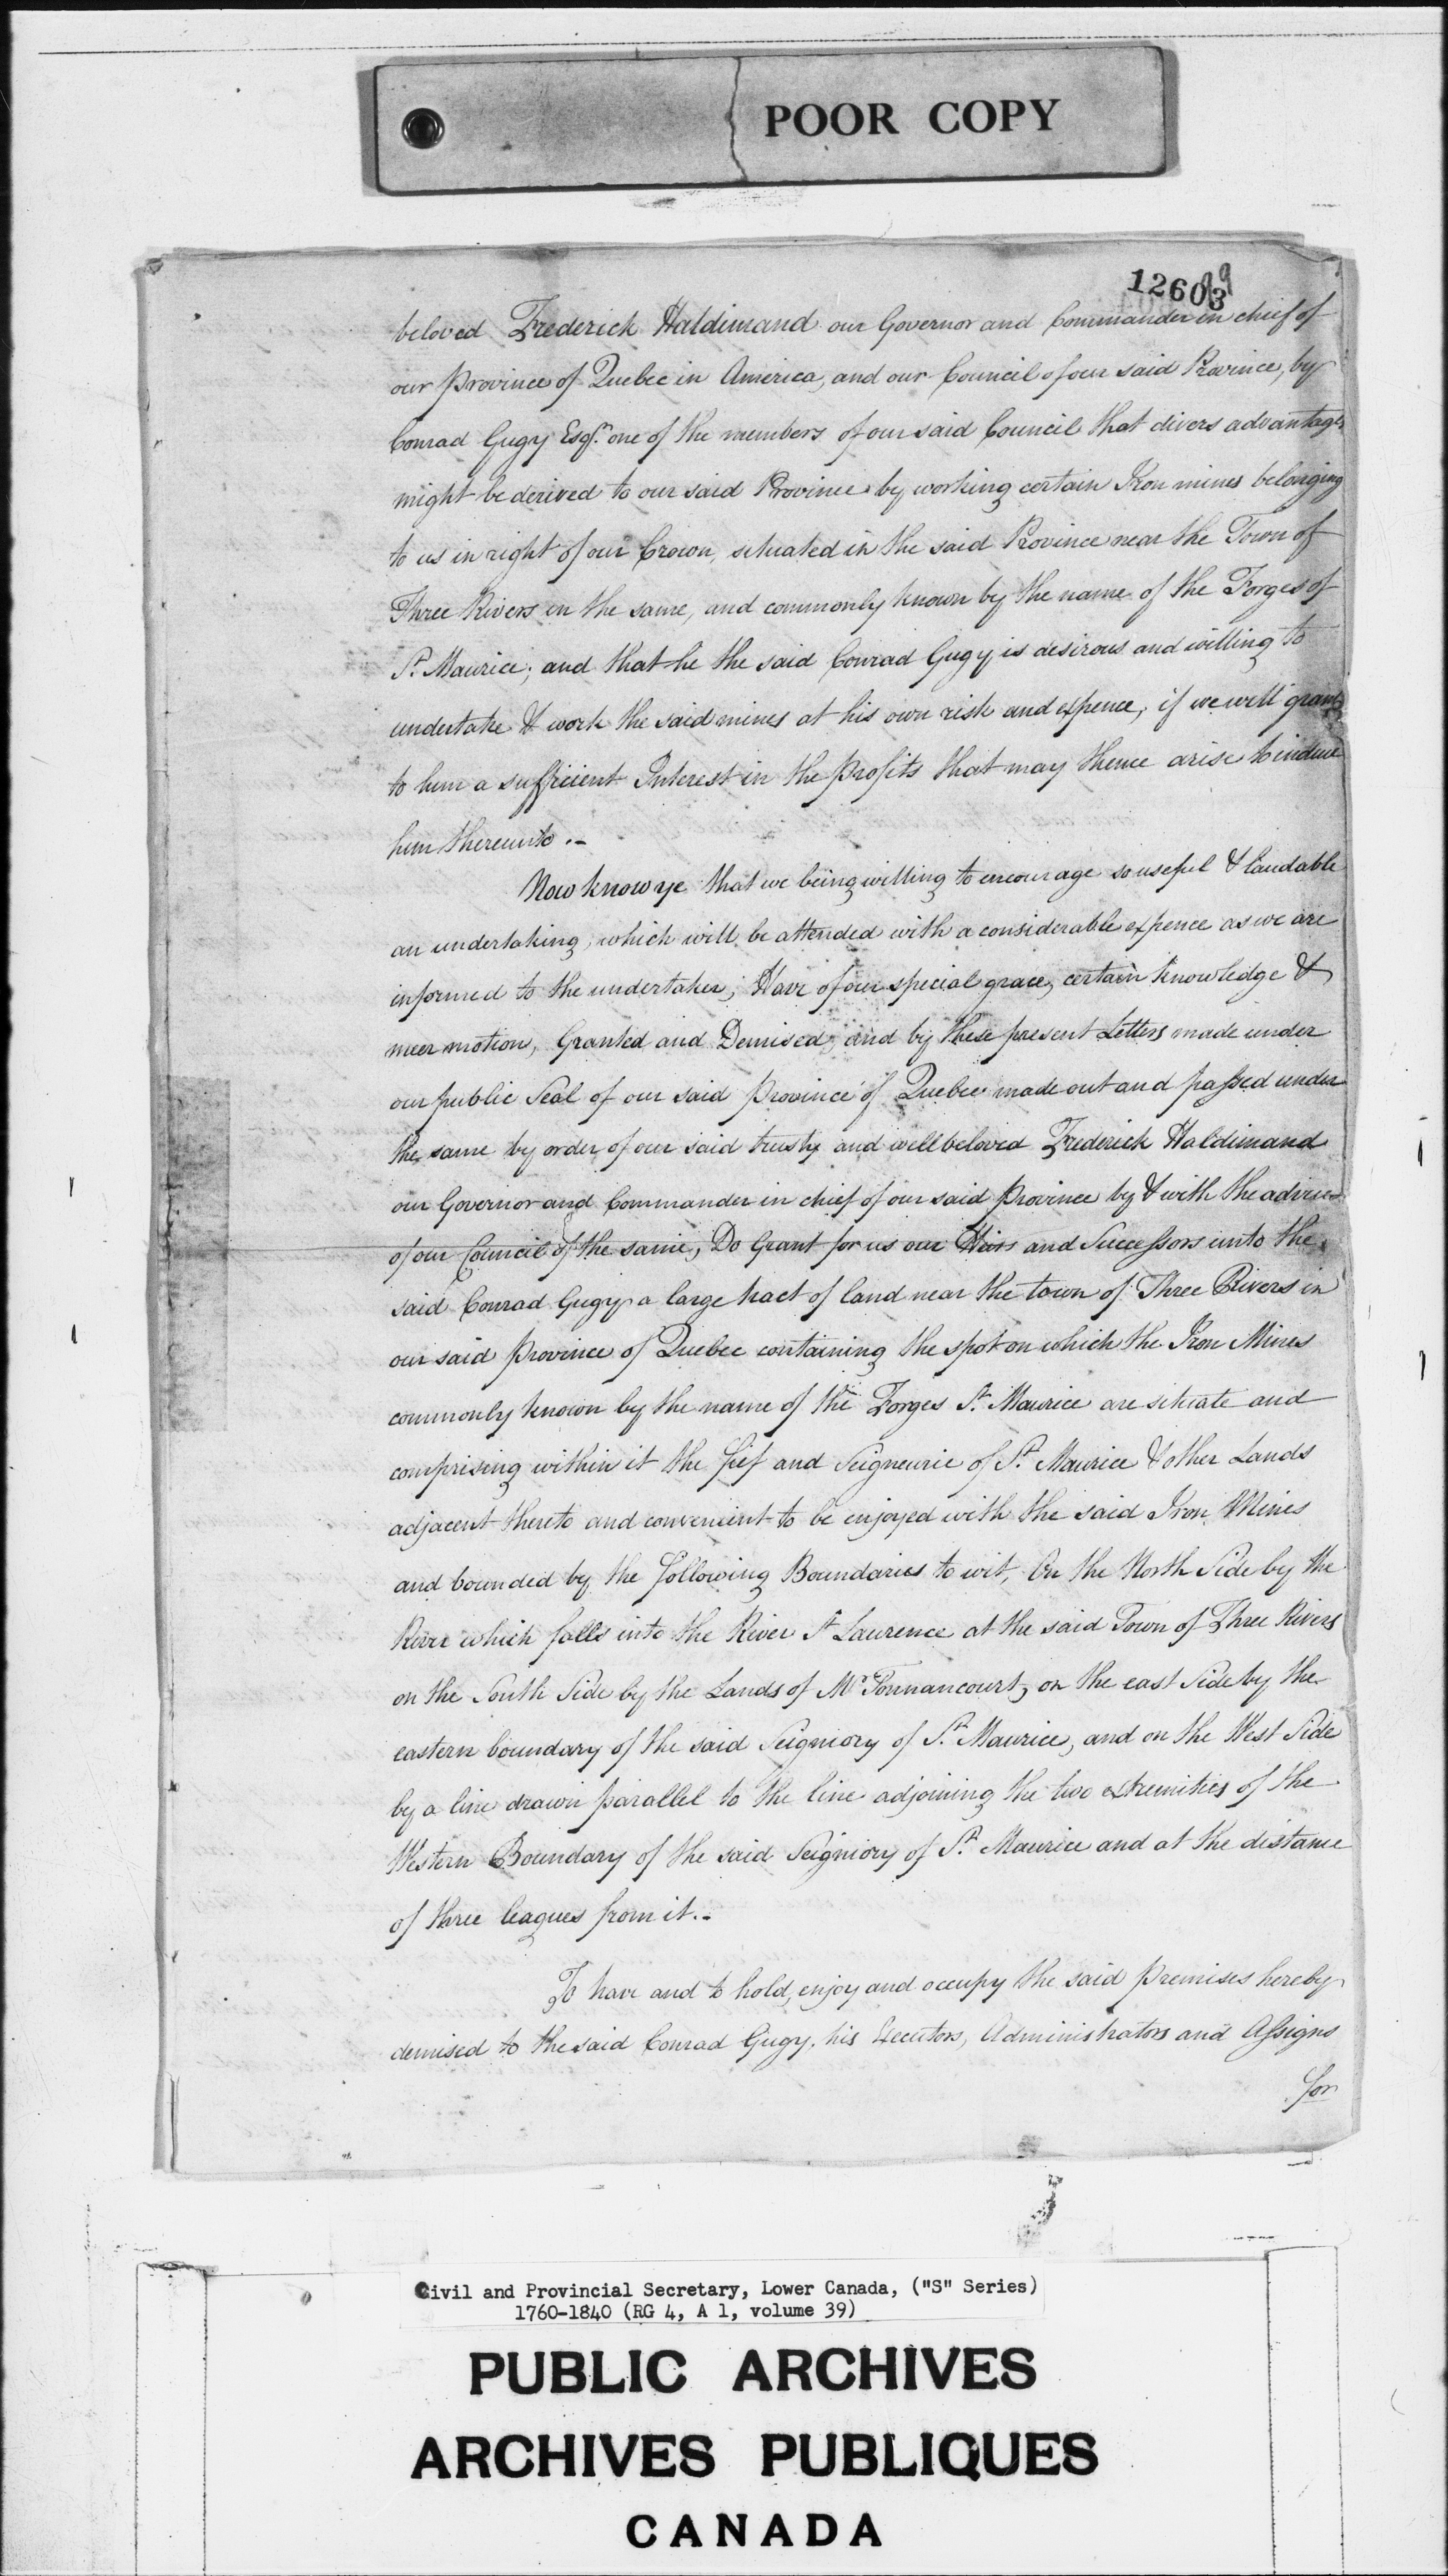 POOR COPY
12603
beloved Frederick Haldimand our Governor and Commander in chief of
our Province of Quebec in America, and our Council of our said Province, by
Conrad Gugy Esqr. one of the members of our said Council that divers advantages
might be derived to our said Province by working certain Iron mines belonging
to us in right of our Crown, situated in the said Province near the Town of
Three Rivers in the same, and commonly known by the name of the Forges of
St. Maurice; and that he the said Conrad Gugy is desirous and willing to
undertake & work the said mines at his own risk and expence, if we will grant
to him a sufficient Interest in the Profits that may thence arise to induce
him thereunto .-
Now know ye that we being willing to encourage so useful & laudable
an undertaking, which will be attended with a considerable expence as we are
informed to the undertaker; Have of our special grace, certain knowledge &
meer motion, Granted and Demised, and by these present Letters made under
our public Seal of our said Province of Quebec made out and passed under
the same by order of our said trusty and well beloved Frederick Haldimand
our Governor and Commander in chief of our said Province by & with the advice
of our Council of the same, Do Grant for us our Heirs and Successors unto the
said Conrad Gugy a large tract of land near the town of Three Rivers in
our said Province of Quebec containing the spot on which the Iron Mines
commonly known by the name of the Forges St. Maurice are situate and
comprising within it the fief and Seigneurie of St. Maurice & other Lands
adjacent thereto and convenient to be enjoyed with the said Iron Mines
and bounded by the following Boundaries to wit, On the North Side by the
River which falls into the River St Laurence at the said Town of Three Rivers
on the South Side by the Lands of Mr Tonnancourt, on the east Side by the
eastern boundary of the said Seigniory of St. Maurice, and on the West Side
by a line drawn parallel to the line adjoining the two extremities of the
Western Boundary of the said Seigniory of St. Maurice and at the distance
of three leagues from it.-
To have and to hold, enjoy and occupy the said Premises hereby
demised to the said Conrad Gugy, his Executors, Administrators and Assigns
for
Civil and Provincial Secretary, Lower Canada, ("S" Series)
1760-1840 (RG 4, A 1, volume 39)
PUBLIC ARCHIVES
ARCHIVES PUBLIQUES
CANADA